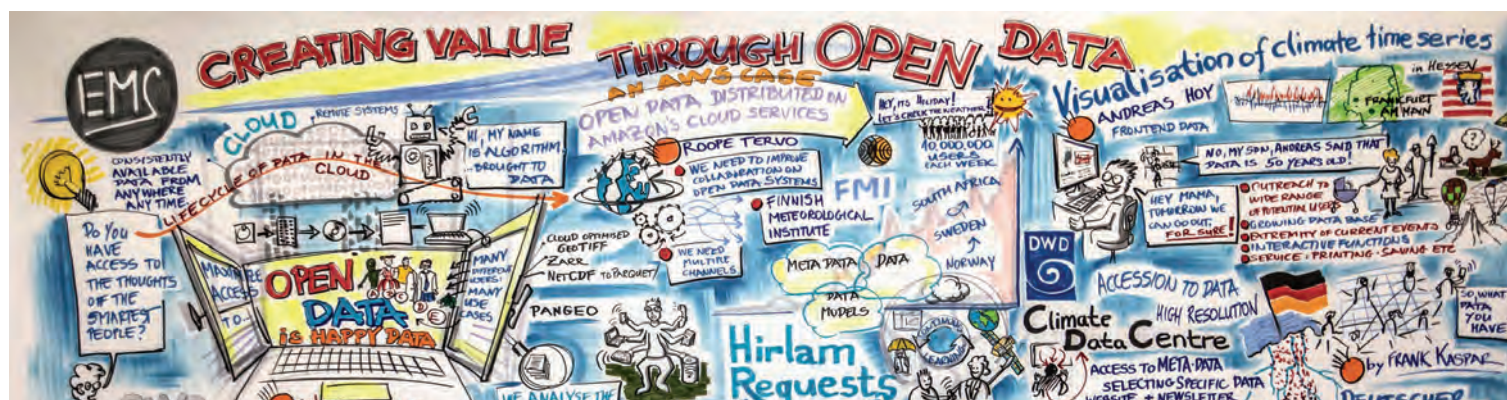 EMS
CREATING VALUE THROUGH OPEN DATA
AN AWS CASE
OPEN DATA DISTRIBUTED ON
AMAZON'S CLOUD SERVICES
CONSISTENTLY
AVAILABLE
DATA FROM
ANYWHERE
ANY TIME.
DO YOU
HAVE
ACCESS TO
THE THOUGHTS
OF THE
SMARTEST
PEOPLE?
CLOUD
REMOTE SYSTEMS
LIFECYCLE OF DATA IN THE
CLOUD
HI, MY NAME
IS ALGORITHM
...BROUGHT TO
DATA
ACCESS
TO...
OPEN
DATA
is HAPPY DATA
MANY
DIFFERENT
USERS:
MANY
USE
CASES
CLOUD OPTIMISED
GEOTIFF
ZARR
NETCDF TO PARQUET
PANGEO
WE ANALYSE THE
ROOPE TERVO
WE NEED TO IMPROVE
COLLABORATION ON
OPEN DATA SYSTEMS
FINNISH
METEOROLOGICAL
INSTITUTE
WE NEED
MULTIPLE
CHANNELS
FMI
HEY, ITS HOLIDAY!
LET'S CHECK THE WEATHER!
10,000,000
USERS
EACH WEEK
SOUTH AFRICA
SWEDEN
NORWAY
META DATA
DATA
DATA
MODELS
Hirlam
Requests
Visualisation of climate time series
ANDREAS HOY
FRONTEND DATA
in HESSEN
FRANKFURT
AM MAIN
NO, MY SON, ANDREAS SAID THAT
DATA IS 50 YEARS OLD!
HEY MAMA,
TOMORROW WE
CAN GO OUT.
FOR SURE!
OUTREACH TO
WIDE RANGE
OF POTENTIAL USERS
GROWING DATA BASE
EXTREMITY OF CURRENT EVENTS
INTERACTIVE FUNCTIONS
SERVICE: PRINTING - SAVING ETC
DWD
ACCESSION TO DATA
HIGH RESOLUTION
Climate
Data Centre
ACCESS TO META-DATA
SELECTING SPECIFIC DATA
WEBSITE + NEWSLETTER
SO, WHAT
DATA
YOU
HAVE
by FRANK KASPAR
DEUTSCHER